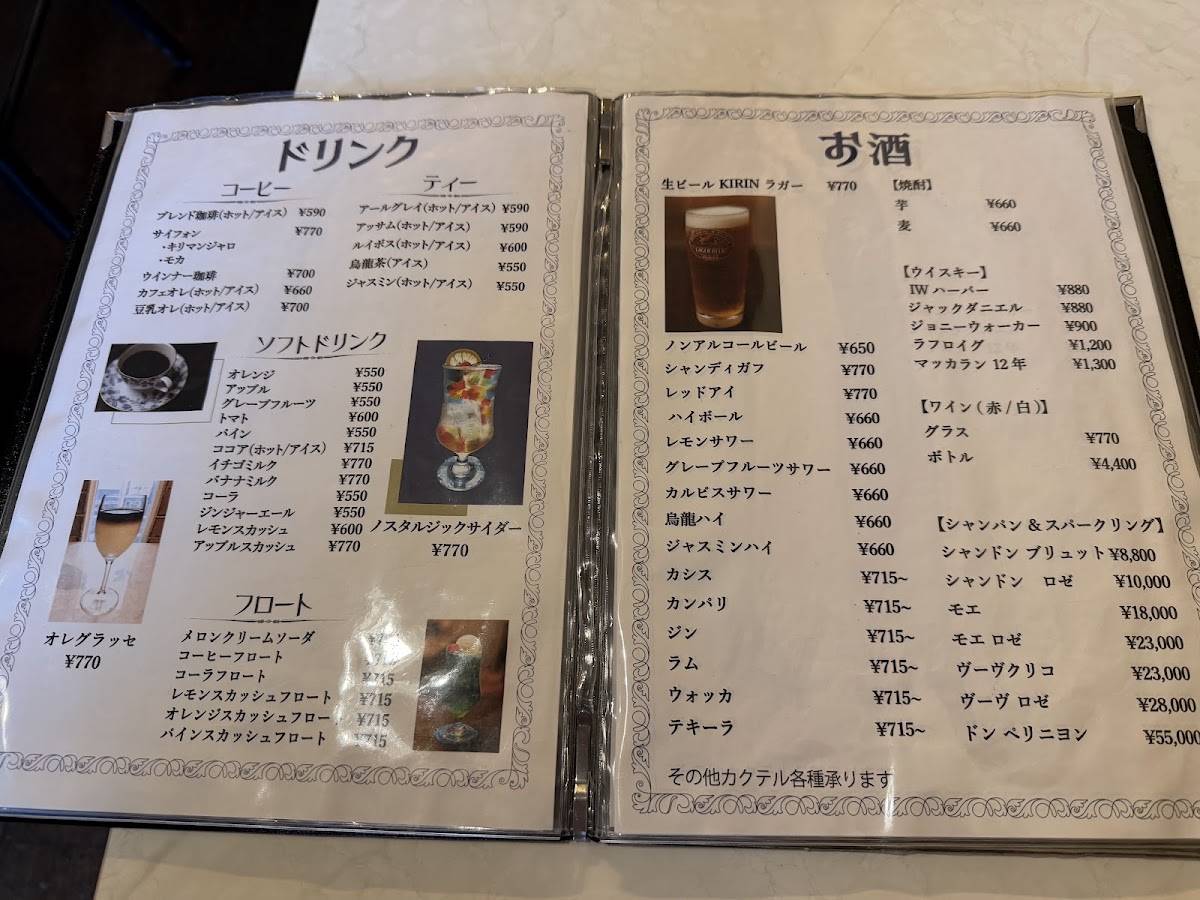 ドリンク
コーヒー
ブレンド珈琲(ホット/アイス) ¥590
サイフォン ¥770
・キリマンジャロ
・モカ
ウインナー珈琲 ¥700
カフェオレ(ホット/アイス) ¥660
豆乳オレ(ホット/アイス) ¥700
ティー
アールグレイ(ホット/アイス) ¥590
アッサム(ホット/アイス) ¥590
ルイボス(ホット/アイス) ¥600
烏龍茶(アイス) ¥550
ジャスミン(ホット/アイス) ¥550
ソフトドリンク
オレンジ ¥550
アップル ¥550
グレープフルーツ ¥550
トマト ¥600
パイン ¥550
ココア(ホット/アイス) ¥715
イチゴミルク ¥770
バナナミルク ¥770
コーラ ¥550
ジンジャーエール ¥550
レモンスカッシュ ¥600
アップルスカッシュ ¥770
ノスタルジックサイダー
¥770
オレグラッセ
¥770
フロート
メロンクリームソーダ
コーヒーフロート
コーラフロート ¥715
レモンスカッシュフロート ¥715
オレンジスカッシュフロート ¥715
パインスカッシュフロート ¥715
お酒
生ビール KIRIN ラガー ¥770
ノンアルコールビール ¥650
シャンディガフ ¥770
レッドアイ ¥770
ハイボール ¥660
レモンサワー ¥660
グレープフルーツサワー ¥660
カルピスサワー ¥660
烏龍ハイ ¥660
ジャスミンハイ ¥660
カシス ¥715~
カンパリ ¥715~
ジン ¥715~
ラム ¥715~
ウォッカ ¥715~
テキーラ ¥715~
その他カクテル各種承ります
【焼酎】
芋 ¥660
麦 ¥660
【ウイスキー】
IW ハーパー ¥880
ジャックダニエル ¥880
ジョニーウォーカー ¥900
ラフロイグ ¥1,200
マッカラン 12年 ¥1,300
【ワイン(赤/白)】
グラス ¥770
ボトル ¥4,400
【シャンパン＆スパークリング】
シャンドン ブリュット ¥8,800
シャンドン ロゼ ¥10,000
モエ ¥18,000
モエ ロゼ ¥23,000
ヴーヴクリコ ¥23,000
ヴーヴ ロゼ ¥28,000
ドン ペリニヨン ¥55,000